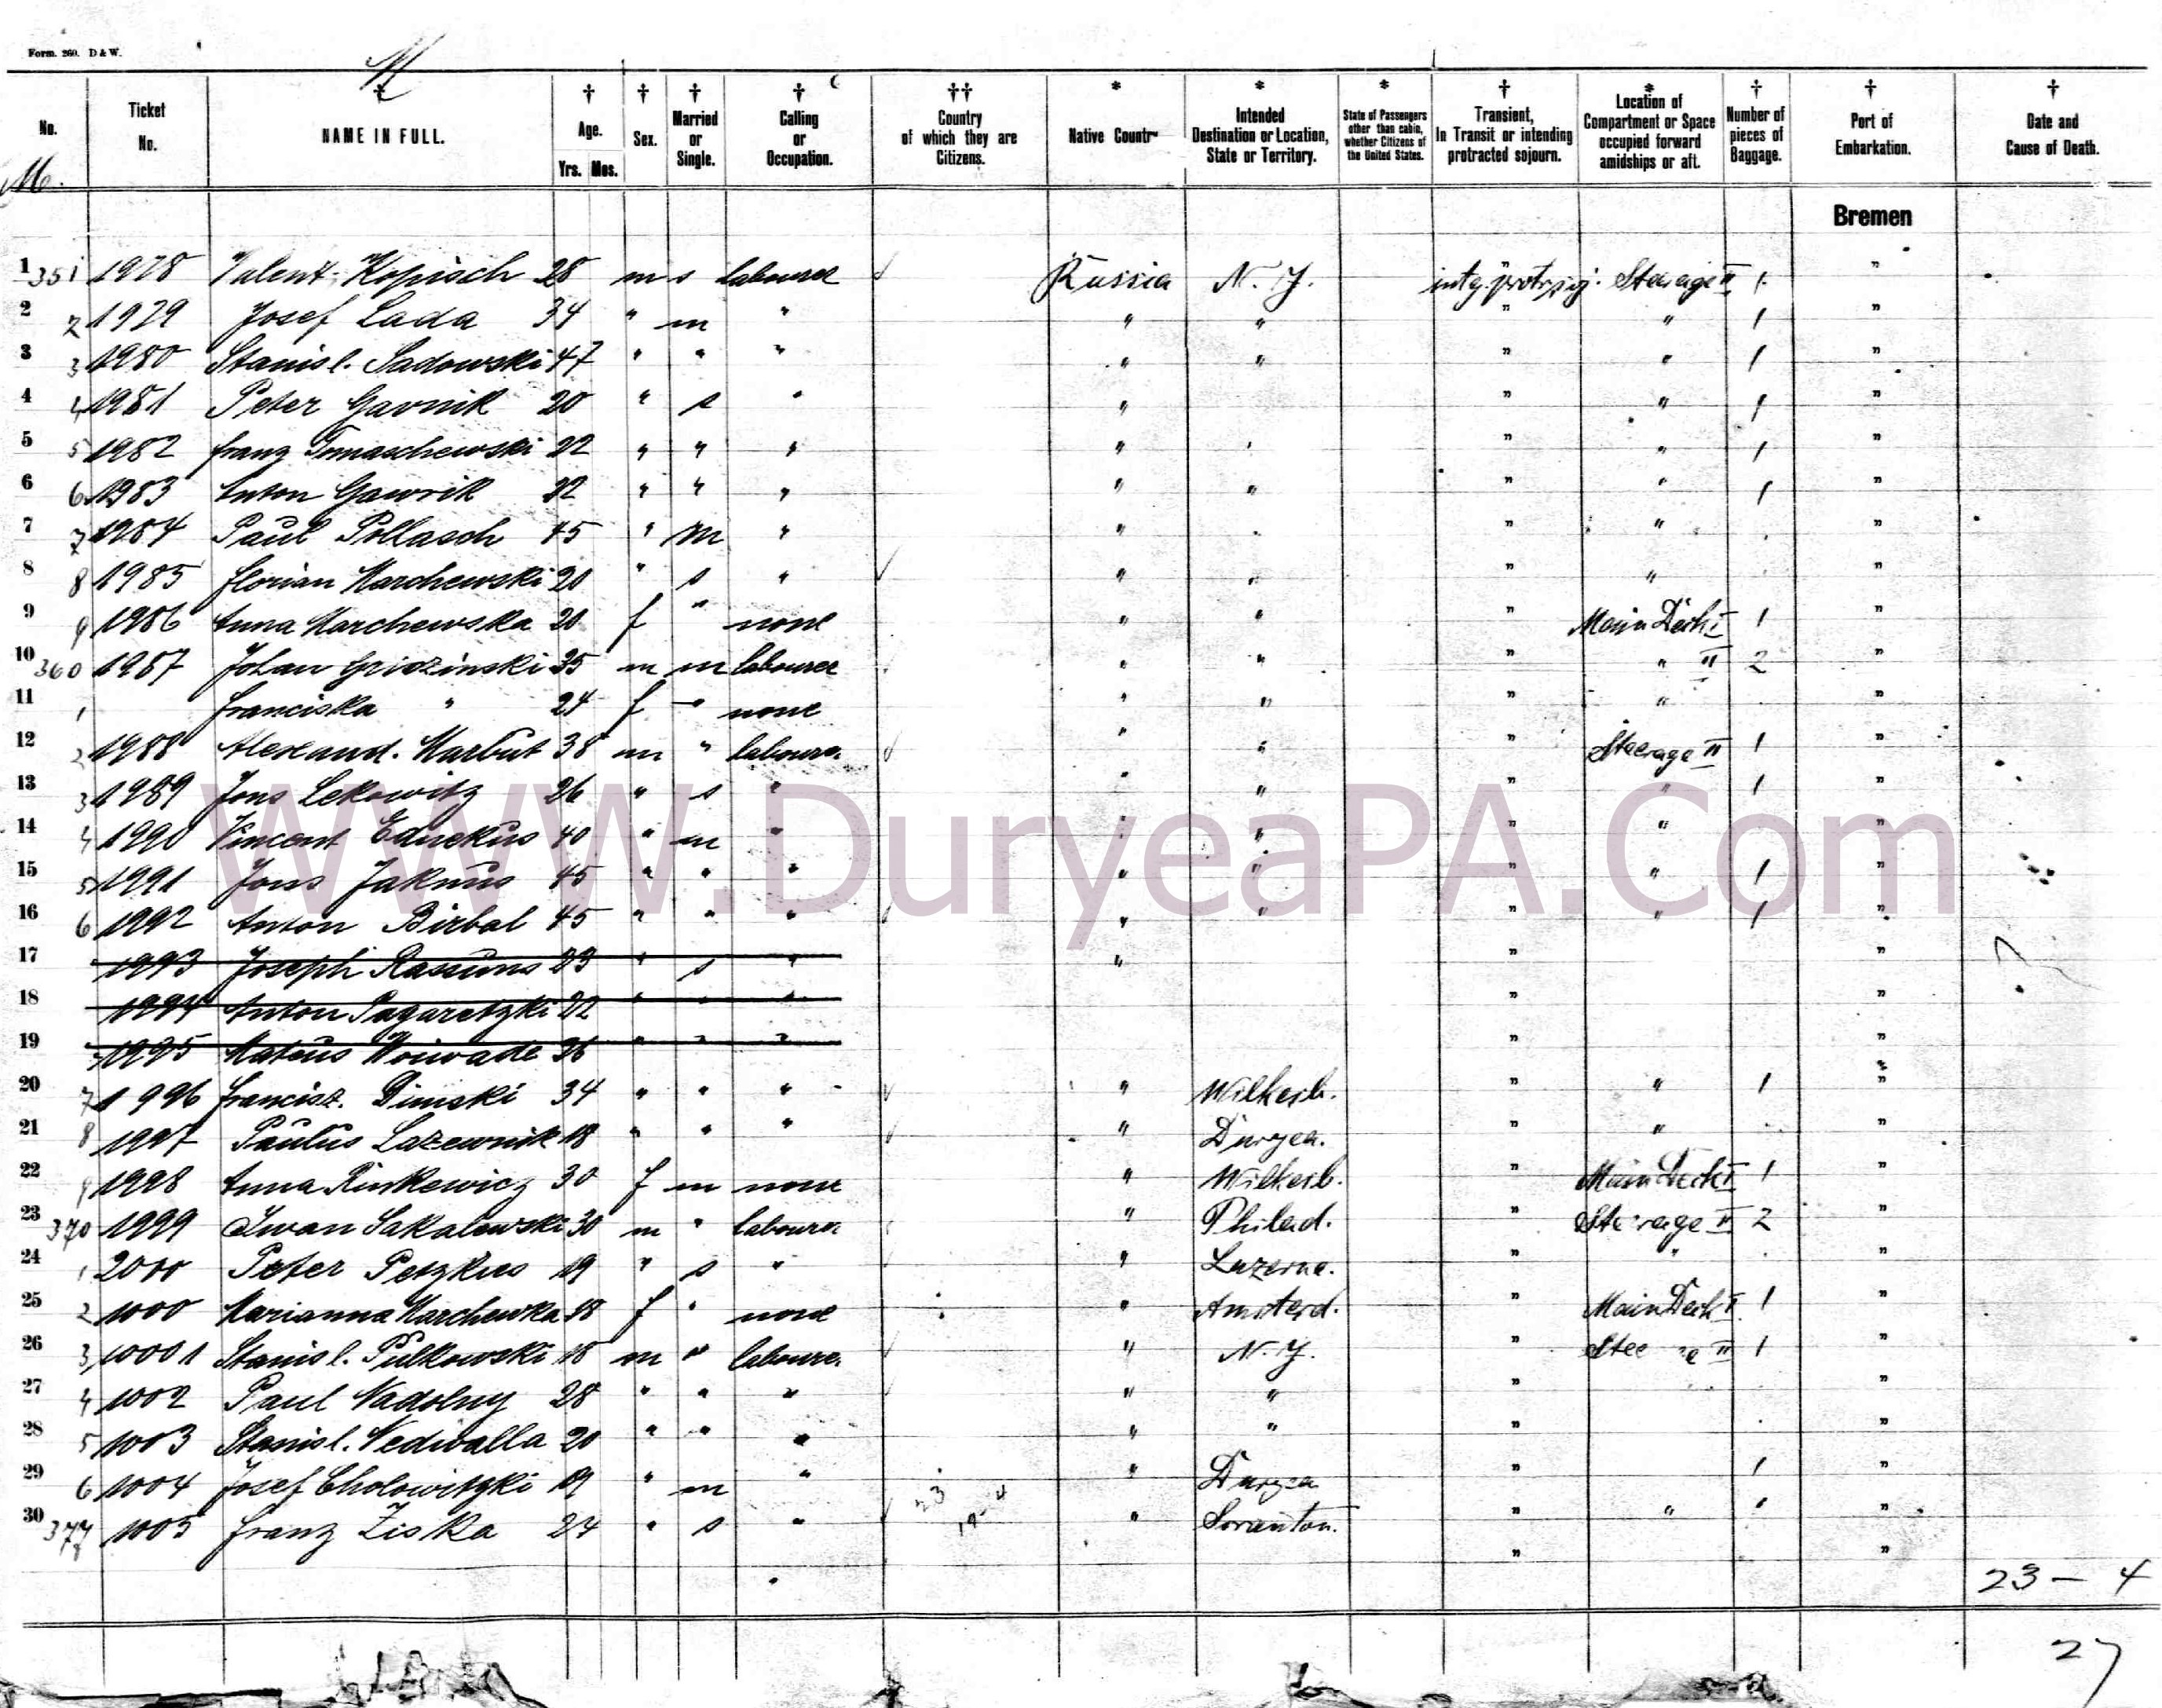 Form. 260. D & W.
No. Ticket No. NAME IN FULL. Age. Yrs. Mos. Sex. Married or Single. Calling or Occupation. Country of which they are Citizens. Native Country Intended Destination or Location, State or Territory. State of Passengers other than cabin, whether Citizens of the United States. Transient, In Transit or intending protracted sojourn. Location of Compartment or Space occupied forward amidships or aft. Number of pieces of Baggage. Port of Embarkation. Date and Cause of Death.
Bremen
1 351 1978 Valent. Kopisch 28 m s labourer Russia N.Y. Steerage II 1 "
2 2 1979 Josef Lada 34 " m " " " " " 1 "
3 3 1980 Stanisl. Sadowski 47 " " " " " " " 1 "
4 4 1981 Peter Gavnik 20 " s " " " " 1 "
5 5 1982 Franz Tomaschewski 22 " " " " " " " 1 "
6 6 1983 Anton Gawrik 22 " " " " " " " 1 "
7 7 1984 Paul Pollasch 45 " m " " " " " "
8 8 1985 Florian Marchewski 20 " s " " " " " "
9 9 1986 Anna Marchewska 20 f " none " " " Main Deck I 1 "
10 360 1987 Johan Griszinski 35 m m labourer " " " " II 2 "
11 1 Franciska " 24 f " none " " " " "
12 2 1988 Alexand. Marbut 38 m " labourer " " " Steerage II 1 "
13 3 1989 Jons Lekowitz 26 " s " " " " " 1 "
14 4 1990 Vincent 40 " m " " " " " "
15 5 1991 Jons Jaknus 45 " " " " " " " 1 "
16 6 1992 Anton Birbal 45 " " " " " " " 1 "
17 1993 Joseph 23 " s " " " "
18 1994 Anton Pagaretzki 22 " " " " "
19 1995 Mateus Woiwade 36 " " " " "
20 7 1996 Francisz. Dimski 34 " " " " Wilkesb. " " 1 "
21 8 1997 Paulus Lazewnik 18 " " " " Duryea. " " "
22 9 1998 Anna Rinkewicz 30 f m none " Wilkesb. " Main Deck I 1 "
23 370 1999 Iwan Sakalewski 30 m " labourer " Philad. " Steerage II 2 "
24 1 2000 Peter Petzkus 19 " s " " Luzerne. " " "
25 2 1000 Marianna Marchewka 18 f " none " Amsterd. " Main Deck I 1 "
26 3 10001 Stanisl. Pulkowski 18 m " labourer " N.Y. " II 1 "
27 4 1002 Paul Nadolny 28 " " " " " " "
28 5 1003 Stanisl. Nediwalla 20 " " " " " " "
29 6 1004 Josef Cholowitzki 19 " m " " Duryea " 1 "
30 377 1005 Franz Ziska 24 " s " " Scranton. " " "
" "
23 - 4
27
WWW.DuryeaPA.Com